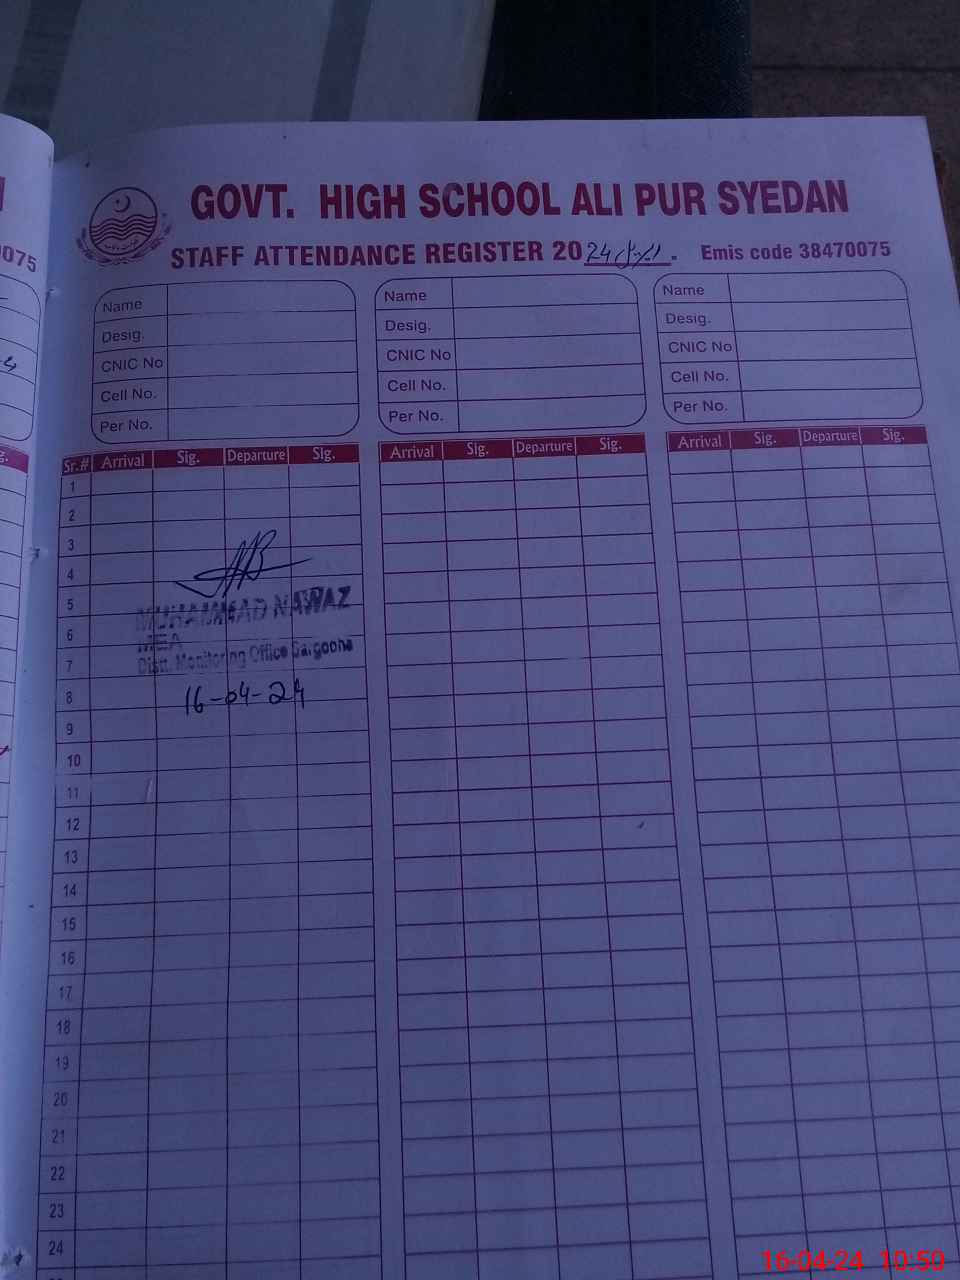 GOVT. HIGH SCHOOL ALI PUR SYEDAN
STAFF ATTENDANCE REGISTER 2024 اپریل. Emis code 38470075
0075
Name Name Name
Desig. Desig. Desig.
CNIC No CNIC No CNIC No
Cell No. Cell No. Cell No.
Per No. Per No. Per No.
Sr.# Arrival Sig. Departure Sig. Arrival Sig. Departure Sig. Arrival Sig. Departure Sig.
1
2
3
4
5
MUHAMMAD NAWAZ
6
MEA
7
Distt. Monitoring Office Sargodha
8
16-04-24
9
10
11
12
13
14
15
16
17
18
19
20
21
22
23
24
16-04-24 10:50